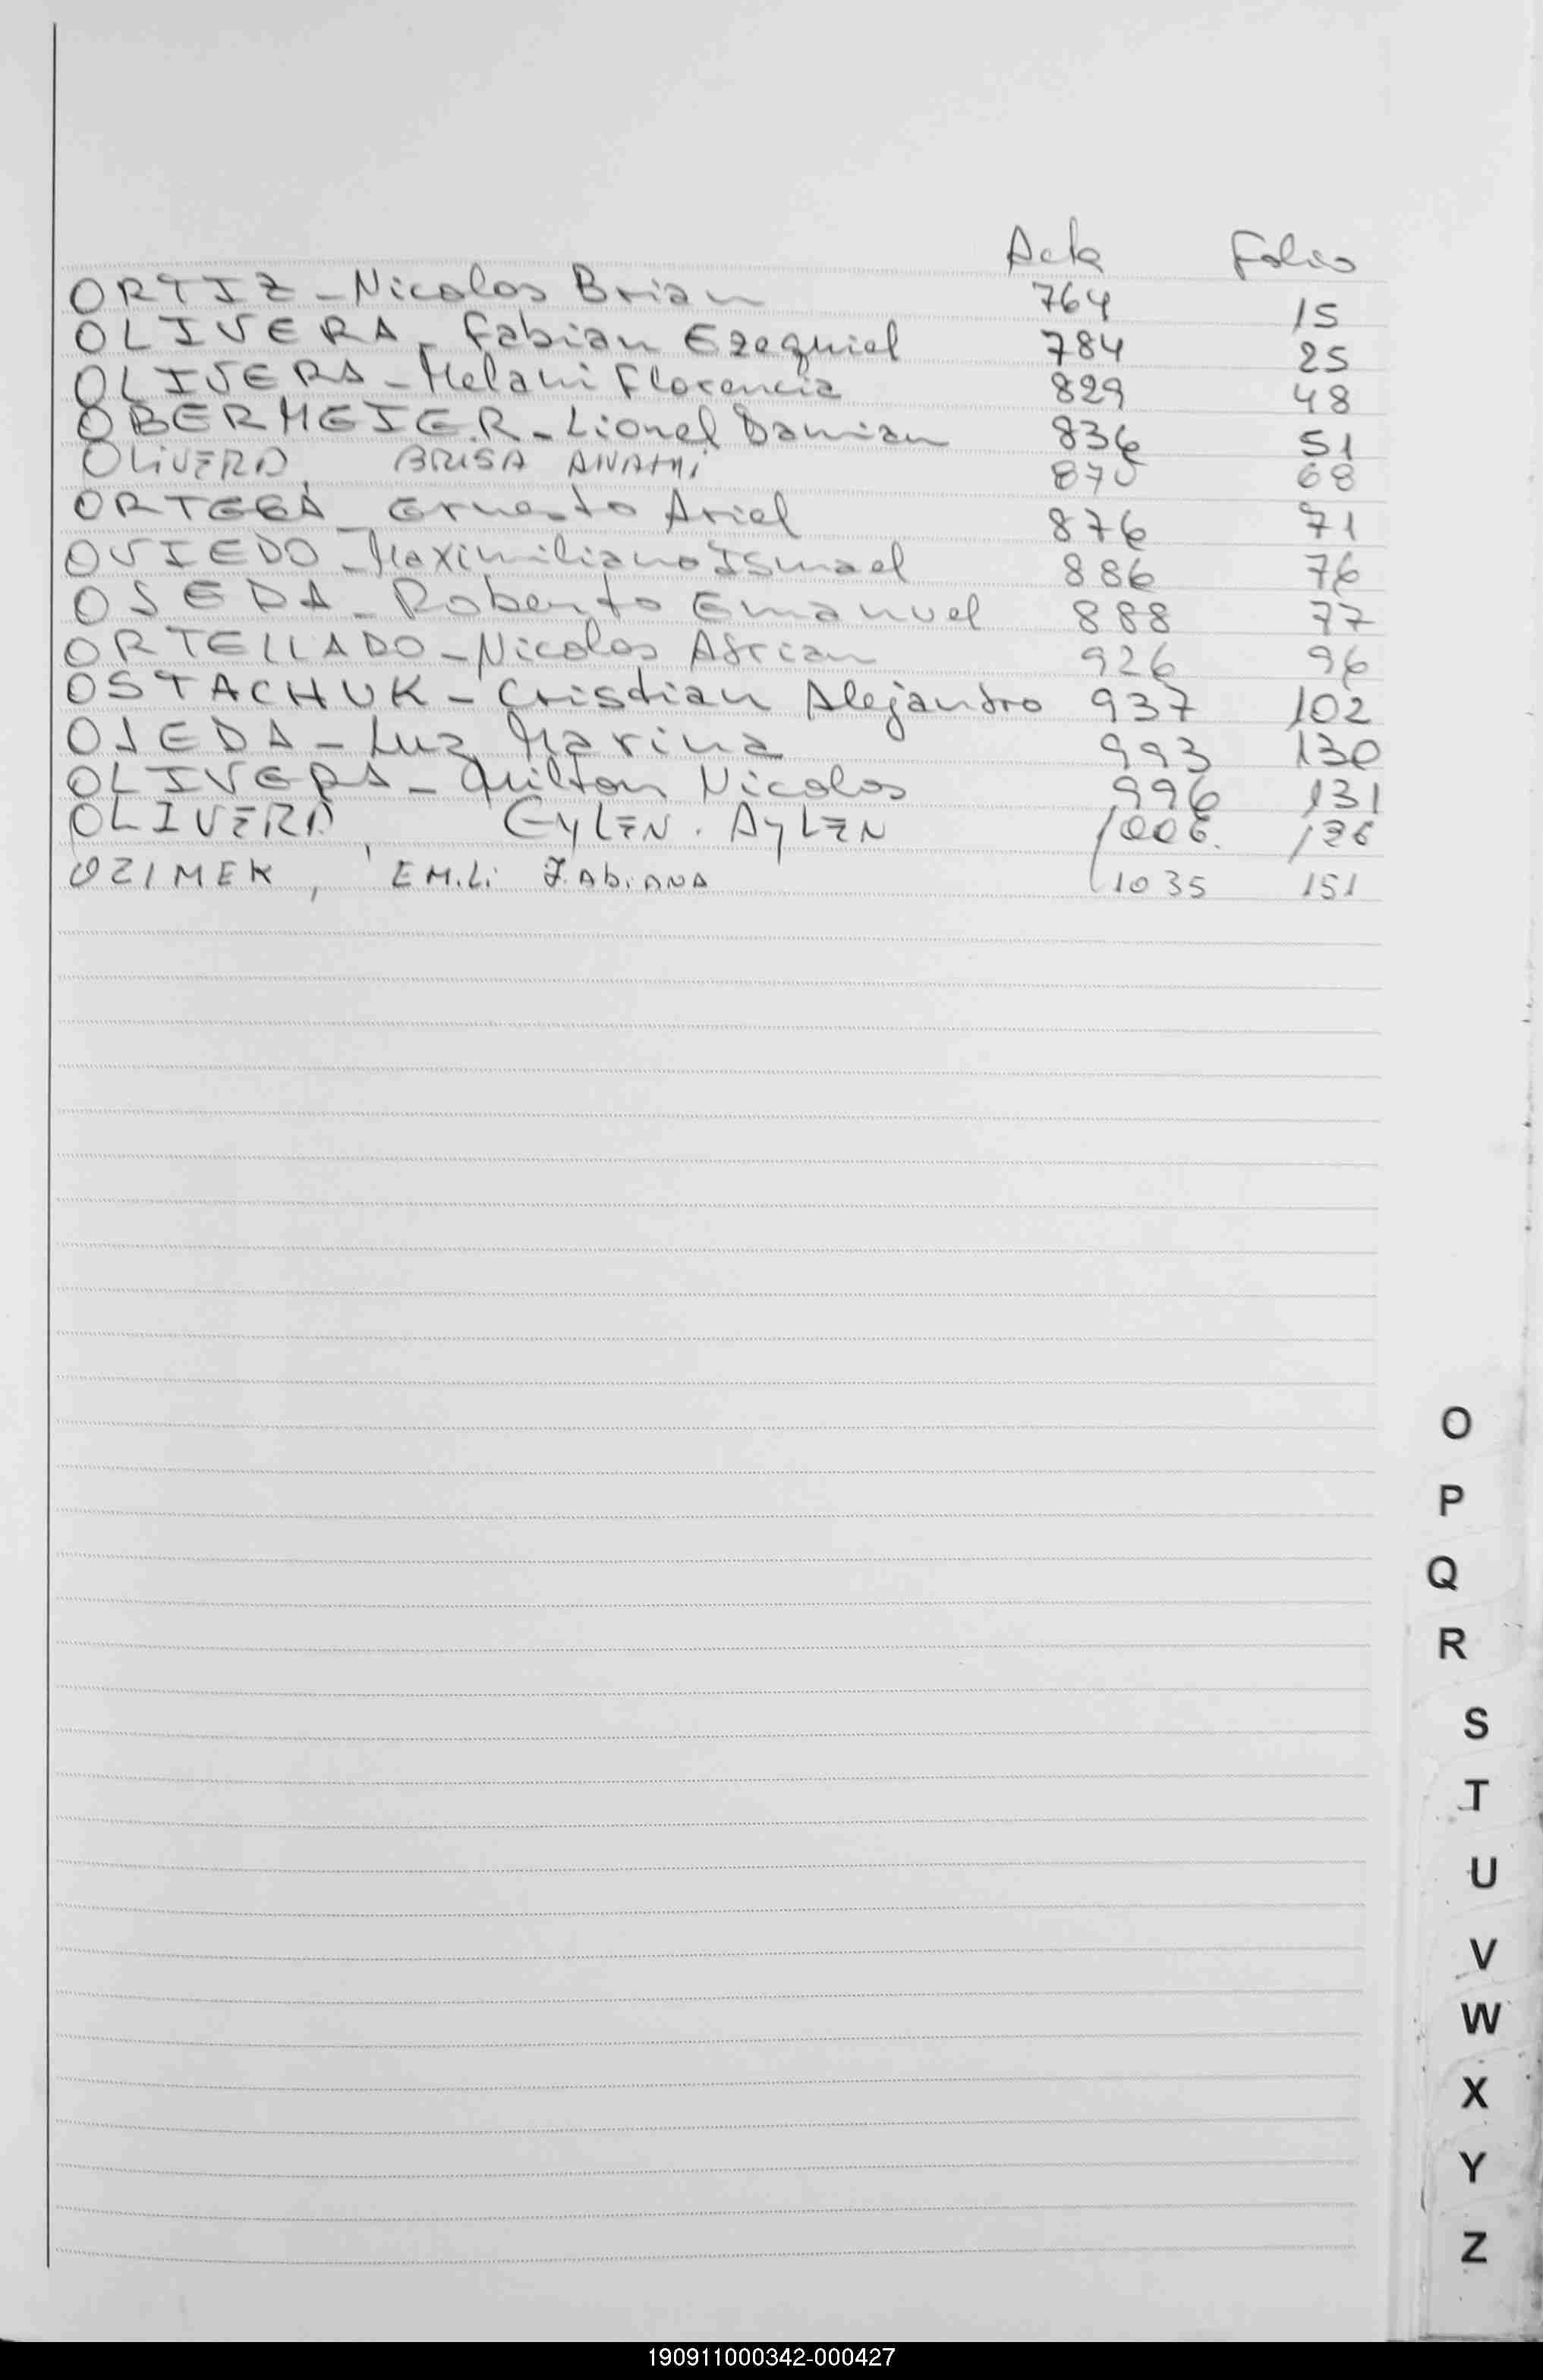 Acta Folio
ORTIZ - Nicolas Brian 764 15
OLIVERA - Fabian Ezequiel 784 25
OLIVERA - Melani Florencia 829 48
OBERMEIER - Lionel Damian 836 51
OLiVERA, BRISA ANAHi 870 68
ORTEGA - Ernesto Ariel 876 71
OVIEDO - Maximiliano Ismael 886 76
OJEDA - Roberto Emanuel 888 77
ORTELLADO - Nicolas Adrian 926 96
OSTACHUK - Cristian Alejandro 937 102
OJEDA - Luz Marina 993 130
OLIVERA - Milton Nicolas 996 131
OLIVERA, EyLEN. AyLEN 1006. 136
OZIMEK, EMiLi FAbiANA 1035 151
O
P
Q
R
S
T
U
V
W
X
Y
Z
190911000342-000427